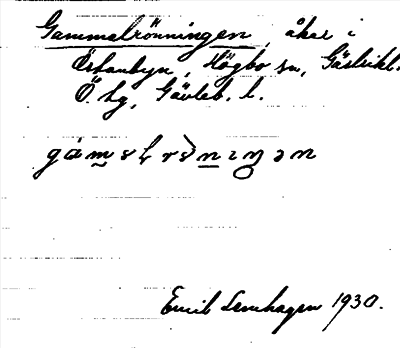 Gammelrönningen, åkar i
Östanbyn, Högbo sn, Gästrikl.
Ö. tg, Gävleb. l.
Emil Lenhagen 1930.